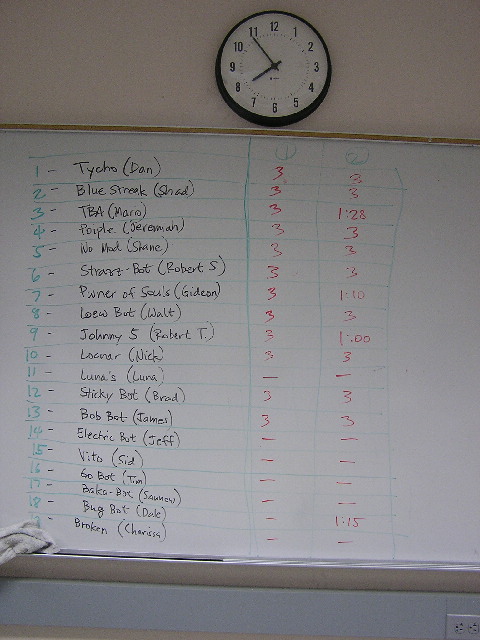 12
11 1
10 2
9 3
8 4
7 5
6
① ②
1 - Tycho (Dan) 3 3
2 - Blue Streak (Shad) 3 3
3 - TBA (Mario) 3 1:28
4 - Poiple (Jeremiah) 3 3
5 - No Mad (Shane) 3 3
6 - Strazz-Bot (Robert S) 3 3
7 - Pwner of Souls (Gideon) 3 1:10
8 - Loew Bot (Walt) 3 3
9 - Johnny 5 (Robert T.) 3 1:00
10 - Locnar (Nick) 3 3
11 - Luna's (Luna) — —
12 - Sticky Bot (Brad) 3 3
13 - Bob Bot (James) 3 3
14 - Electric Bot (Jeff) — —
15 - Vito (Sid) — —
16 - Go Bot (Tim) — —
17 - Baka-Bot — —
18 - Bug Bot (Dale) — 1:15
Broken (Charissa) — —